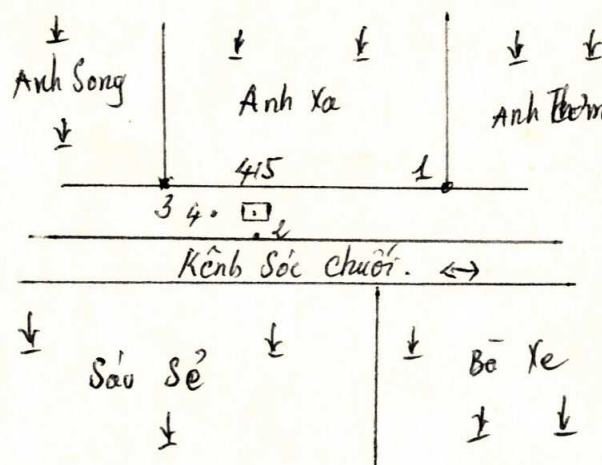 Anh Song
Anh Xa
Anh
415
1
3
4.
2
Kênh Sóc Chuối.
Sáu Sẻ
Bà Xe